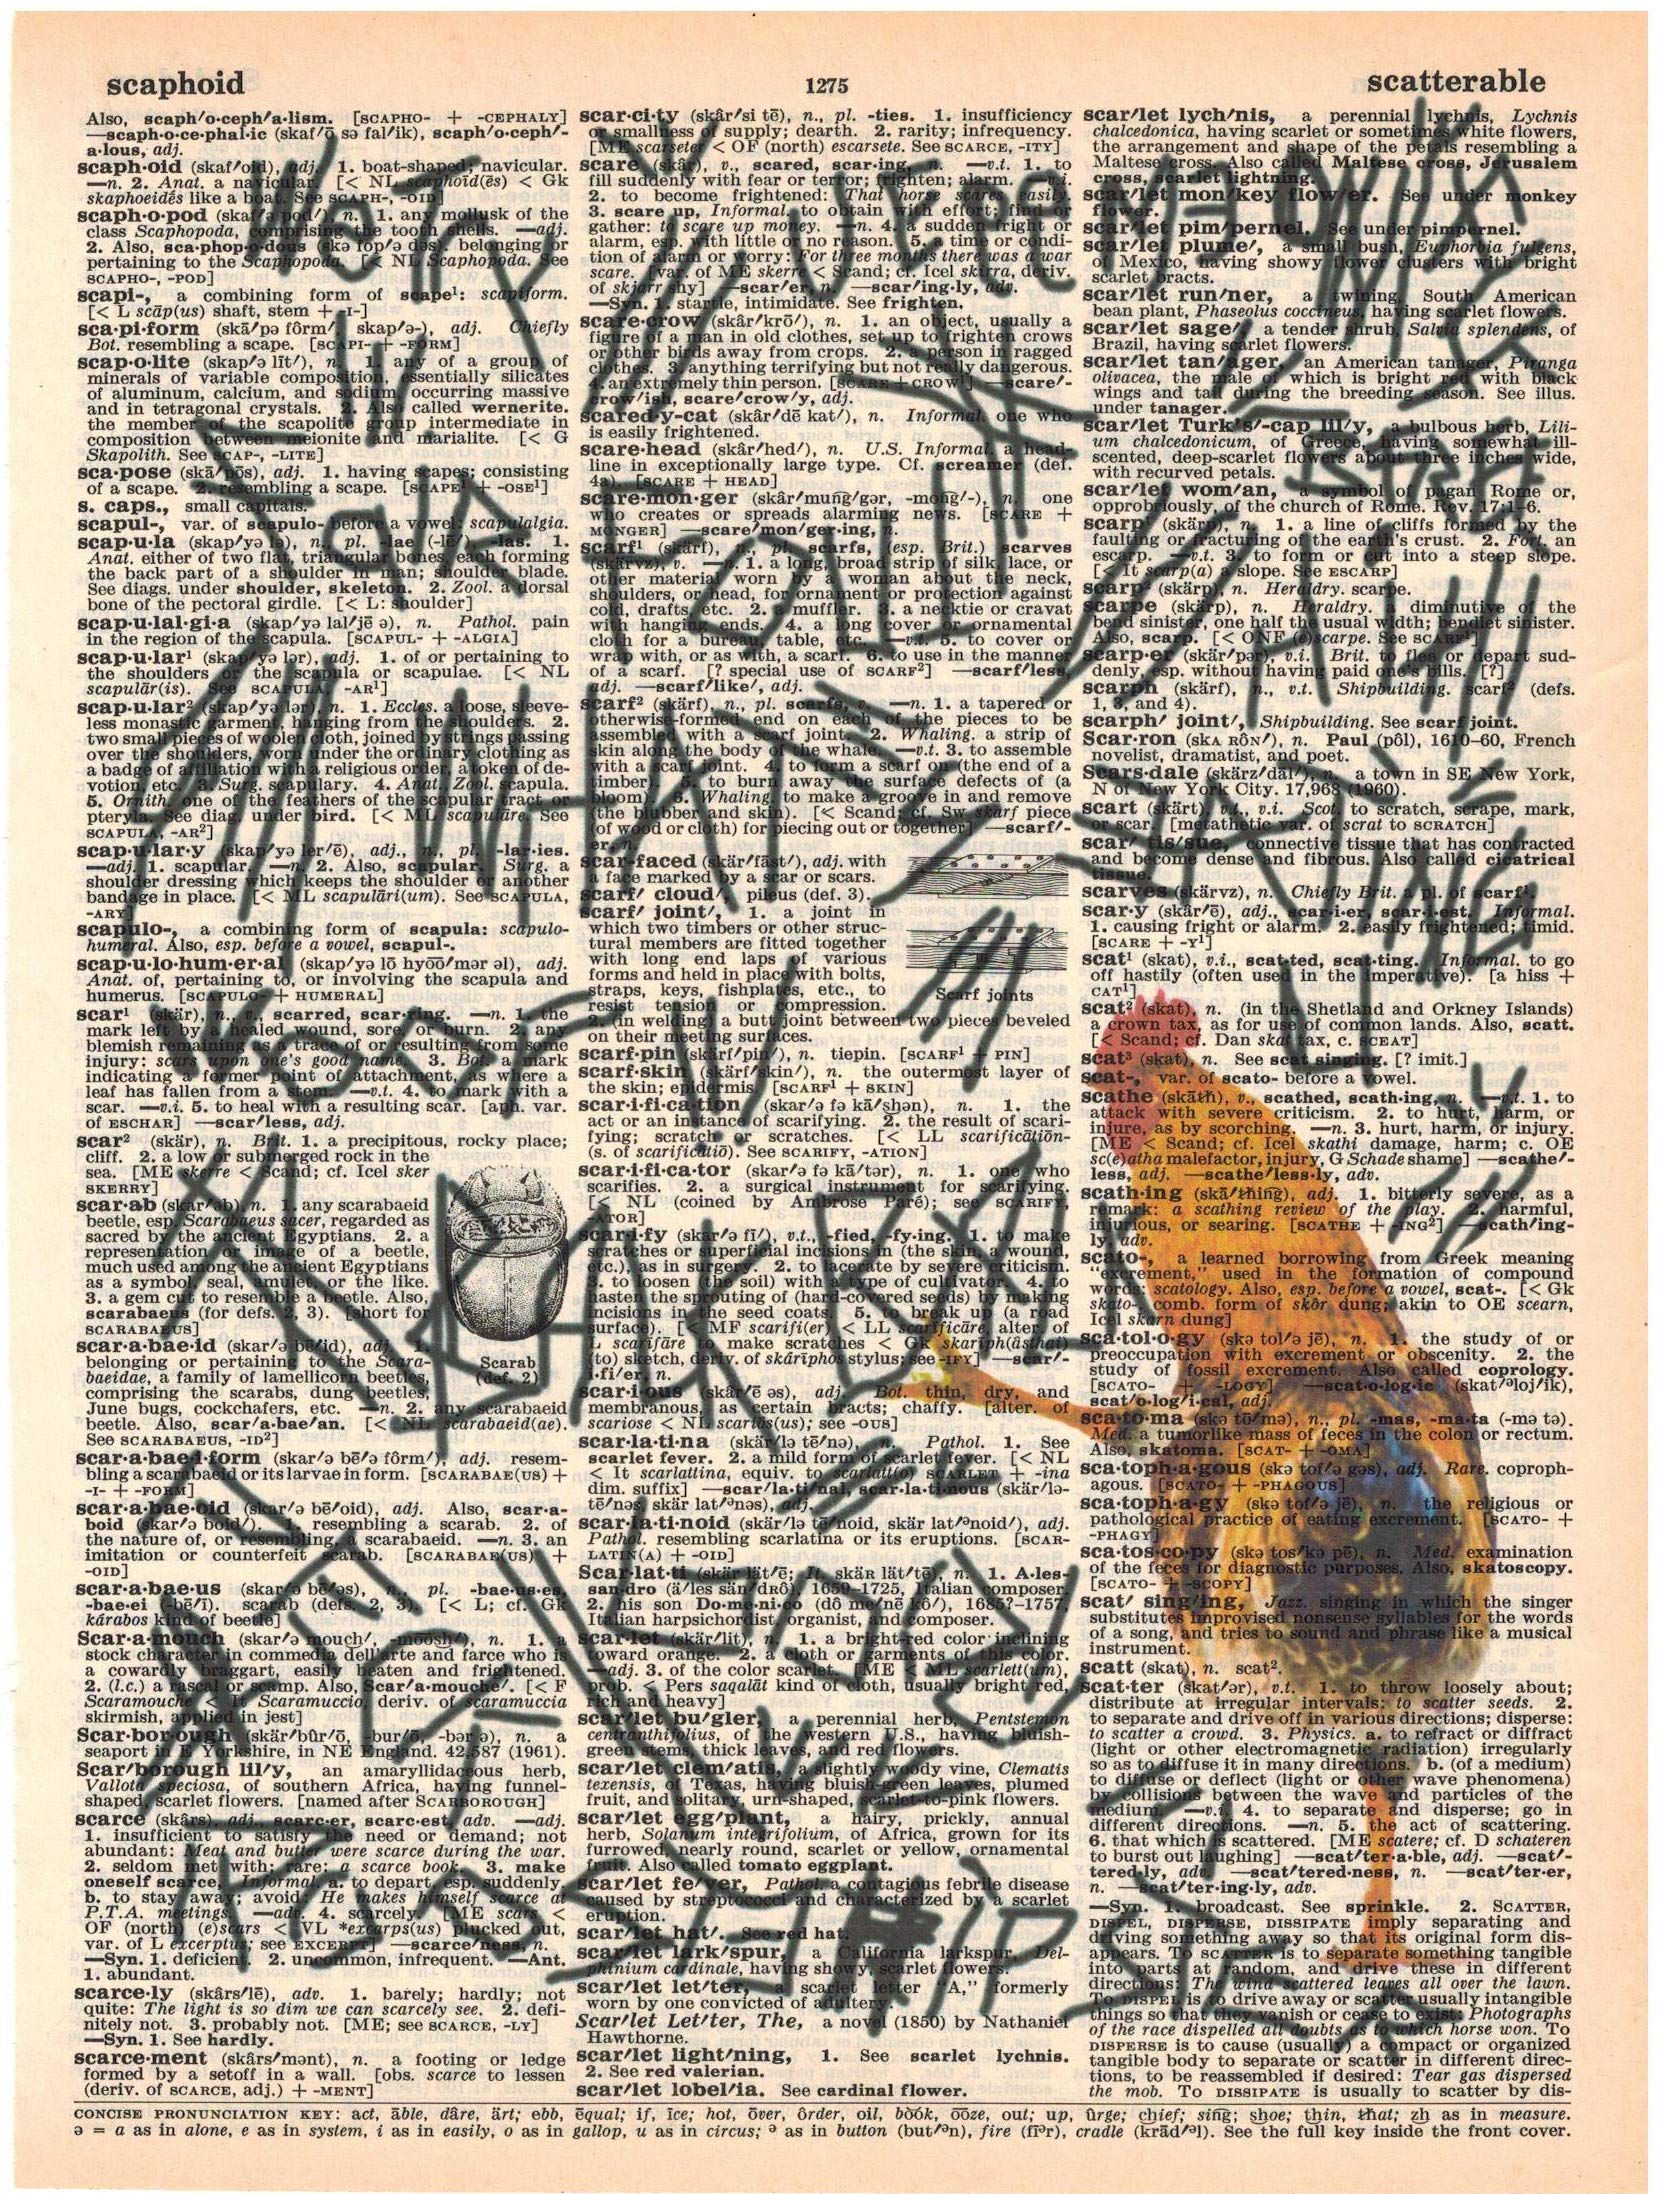 scaphoid
1275
scatterable
Also, scaph′o·ceph′a·lism. [SCAPHO- + -CEPHALY]
—scaph·o·ce·phal·ic (skaf′ō sə fal′ik), scaph′o·ceph′-
a·lous, adj.
scaph·oid (skaf′oid), adj. 1. boat-shaped; navicular.
—n. 2. Anat. a navicular. [< NL scaphoīd(ēs) < Gk
skaphoeidḗs like a boat. See SCAPH-, -OID]
scaph·o·pod (skaf′ə pod′), n. 1. any mollusk of the
class Scaphopoda, comprising the tooth shells. —adj.
2. Also, sca·phop·o·dous (skə fop′ə dəs). belonging or
pertaining to the Scaphopoda. [< NL Scaphopoda. See
SCAPHO-, -POD]
scapi-, a combining form of scape¹: scapiform.
[< L scāp(us) shaft, stem + -I-]
sca·pi·form (skā′pə fôrm′, skap′ə-), adj. Chiefly
Bot. resembling a scape. [SCAPI- + -FORM]
scap·o·lite (skap′ə līt′), n. 1. any of a group of
minerals of variable composition, essentially silicates
of aluminum, calcium, and sodium, occurring massive
and in tetragonal crystals. 2. Also called wernerite.
the member of the scapolite group intermediate in
composition between meionite and marialite. [< G
Skapolith. See SCAP-, -LITE]
sca·pose (skā′pōs), adj. 1. having scapes; consisting
of a scape. 2. resembling a scape. [SCAPE¹ + -OSE¹]
s. caps., small capitals.
scapul-, var. of scapulo- before a vowel: scapulalgia.
scap·u·la (skap′yə lə), n., pl. -lae (-lē′), -las. 1.
Anat. either of two flat, triangular bones, each forming
the back part of a shoulder in man; shoulder blade.
See diags. under shoulder, skeleton. 2. Zool. a dorsal
bone of the pectoral girdle. [< L: shoulder]
scap·u·lal·gi·a (skap′yə lal′jē ə), n. Pathol. pain
in the region of the scapula. [SCAPUL- + -ALGIA]
scap·u·lar¹ (skap′yə lər), adj. 1. of or pertaining to
the shoulders or the scapula or scapulae. [< NL
scapulār(is). See SCAPULA, -AR¹]
scap·u·lar² (skap′yə lər), n. 1. Eccles. a loose, sleeve-
less monastic garment, hanging from the shoulders. 2.
two small pieces of woolen cloth, joined by strings passing
over the shoulders, worn under the ordinary clothing as
a badge of affiliation with a religious order, a token of de-
votion, etc. 3. Surg. scapulary. 4. Anat., Zool. scapula.
5. Ornith. one of the feathers of the scapular tract or
pteryla. See diag. under bird. [< ML scapulāre. See
SCAPULA, -AR²]
scap·u·lar·y (skap′yə ler′ē), adj., n., pl. -lar·ies.
—adj. 1. scapular. —n. 2. Also, scapular. Surg. a
shoulder dressing which keeps the shoulder or another
bandage in place. [< ML scapulāri(um). See SCAPULA,
-ARY]
scapulo-, a combining form of scapula: scapulo-
humeral. Also, esp. before a vowel, scapul-.
scap·u·lo·hum·er·al (skap′yə lō hyo͞o′mər əl), adj.
Anat. of, pertaining to, or involving the scapula and
humerus. [SCAPULO- + HUMERAL]
scar¹ (skär), n., v., scarred, scar·ring. —n. 1. the
mark left by a healed wound, sore, or burn. 2. any
blemish remaining as a trace of or resulting from some
injury: scars upon one's good name. 3. Bot. a mark
indicating a former point of attachment, as where a
leaf has fallen from a stem. —v.t. 4. to mark with a
scar. —v.i. 5. to heal with a resulting scar. [aph. var.
of ESCHAR] —scar′less, adj.
scar² (skär), n. Brit. 1. a precipitous, rocky place;
cliff. 2. a low or submerged rock in the
sea. [ME skerre < Scand; cf. Icel sker
SKERRY]
scar·ab (skar′əb), n. 1. any scarabaeid
beetle, esp. Scarabaeus sacer, regarded as
sacred by the ancient Egyptians. 2. a
representation or image of a beetle,
much used among the ancient Egyptians
as a symbol, seal, amulet, or the like.
3. a gem cut to resemble a beetle. Also,
scarabaeus (for defs. 2, 3). [short for
SCARABAEUS]
scar·a·bae·id (skar′ə bē′id), adj. 1.
belonging or pertaining to the Scara-
baeidae, a family of lamellicorn beetles,
comprising the scarabs, dung beetles,
June bugs, cockchafers, etc. —n. 2. any scarabaeid
beetle. Also, scar′a·bae′an. [< NL scarabaeid(ae).
See SCARABAEUS, -ID²]
Scarab
(def. 2)
scar·a·bae·i·form (skar′ə bē′ə fôrm′), adj. resem-
bling a scarabaeid or its larvae in form. [SCARABAE(US) +
-I- + -FORM]
scar·a·bae·oid (skar′ə bē′oid), adj. Also, scar·a-
boid (skar′ə boid′). 1. resembling a scarab. 2. of
the nature of, or resembling, a scarabaeid. —n. 3. an
imitation or counterfeit scarab. [SCARABAE(US) +
-OID]
scar·a·bae·us (skar′ə bē′əs), n., pl. -bae·us·es,
-bae·ei (-bē′ī). scarab (defs. 2, 3). [< L; cf. Gk
kárabos kind of beetle]
Scar·a·mouch (skar′ə mouch′, -mo͞osh′), n. 1. a
stock character in commedia dell'arte and farce who is
a cowardly braggart, easily beaten and frightened.
2. (l.c.) a rascal or scamp. Also, Scar′a·mouche′. [< F
Scaramouche < It Scaramuccio, deriv. of scaramuccia
skirmish, applied in jest]
Scar·bor·ough (skär′bûr′ō, -bur′ō, -bər ə), n. a
seaport in E Yorkshire, in NE England. 42,587 (1961).
Scar′borough lil′y, an amaryllidaceous herb,
Vallota speciosa, of southern Africa, having funnel-
shaped, scarlet flowers. [named after SCARBOROUGH]
scarce (skârs) adj., scarc·er, scarc·est, adv. —adj.
1. insufficient to satisfy the need or demand; not
abundant: Meat and butter were scarce during the war.
2. seldom met with; rare: a scarce book. 3. make
oneself scarce, Informal. a. to depart, esp. suddenly.
b. to stay away; avoid: He makes himself scarce at
P.T.A. meetings. —adv. 4. scarcely. [ME scars <
OF (north) (e)scars < VL *excarps(us) plucked out,
var. of L excerptus; see EXCERPT] —scarce′ness, n.
—Syn. 1. deficient. 2. uncommon, infrequent. —Ant.
1. abundant.
scarce·ly (skârs′lē), adv. 1. barely; hardly; not
quite: The light is so dim we can scarcely see. 2. defi-
nitely not. 3. probably not. [ME; see SCARCE, -LY]
—Syn. 1. See hardly.
scarce·ment (skârs′mənt), n. a footing or ledge
formed by a setoff in a wall. [obs. scarce to lessen
(deriv. of SCARCE, adj.) + -MENT]
scar·ci·ty (skâr′si tē), n., pl. -ties. 1. insufficiency
or smallness of supply; dearth. 2. rarity; infrequency.
[ME scarsete < OF (north) escarsete. See SCARCE, -ITY]
scare (skâr), v., scared, scar·ing, n. —v.t. 1. to
fill suddenly with fear or terror; frighten; alarm. —v.i.
2. to become frightened: That horse scares easily.
3. scare up, Informal. to obtain with effort; find or
gather: to scare up money. —n. 4. a sudden fright or
alarm, esp. with little or no reason. 5. a time or condi-
tion of alarm or worry: For three months there was a war
scare. [var. of ME skerre < Scand; cf. Icel skirra, deriv.
of skjarr shy] —scar′er, n. —scar′ing·ly, adv.
—Syn. 1. startle, intimidate. See frighten.
scare·crow (skâr′krō′), n. 1. an object, usually a
figure of a man in old clothes, set up to frighten crows
or other birds away from crops. 2. a person in ragged
clothes. 3. anything terrifying but not really dangerous.
4. an extremely thin person. [SCARE + CROW¹] —scare′-
crow′ish, scare′crow′y, adj.
scared·y-cat (skâr′dē kat′), n. Informal. one who
is easily frightened.
scare·head (skâr′hed′), n. U.S. Informal. a head-
line in exceptionally large type. Cf. screamer (def.
4a). [SCARE + HEAD]
scare·mon·ger (skâr′muṅg′gər, -moṅg′-), n. one
who creates or spreads alarming news. [SCARE +
MONGER] —scare′mon′ger·ing, n.
scarf¹ (skärf), n., pl. scarfs, (esp. Brit.) scarves
(skärvz), v. —n. 1. a long, broad strip of silk, lace, or
other material worn by a woman about the neck,
shoulders, or head, for ornament or protection against
cold, drafts, etc. 2. a muffler. 3. a necktie or cravat
with hanging ends. 4. a long cover or ornamental
cloth for a bureau, table, etc. —v.t. 5. to cover or
wrap with, or as with, a scarf. 6. to use in the manner
of a scarf. [? special use of SCARF²] —scarf′less,
adj. —scarf′like′, adj.
scarf² (skärf), n., pl. scarfs, v. —n. 1. a tapered or
otherwise-formed end on each of the pieces to be
assembled with a scarf joint. 2. Whaling. a strip of
skin along the body of the whale. —v.t. 3. to assemble
with a scarf joint. 4. to form a scarf on (the end of a
timber). 5. to burn away the surface defects of (a
bloom). 6. Whaling. to make a groove in and remove
(the blubber and skin). [< Scand; cf. Sw skarf piece
(of wood or cloth) for piecing out or together] —scarf′-
er, n.
scar-faced (skär′fāst′), adj. with
a face marked by a scar or scars.
scarf′ cloud′, pileus (def. 3).
scarf′ joint′, 1. a joint in
which two timbers or other struc-
tural members are fitted together
with long end laps of various
forms and held in place with bolts,
straps, keys, fishplates, etc., to
resist tension or compression.
2. (in welding) a butt joint between two pieces beveled
on their meeting surfaces.
Scarf joints
scarf·pin (skärf′pin′), n. tiepin. [SCARF¹ + PIN]
scarf·skin (skärf′skin′), n. the outermost layer of
the skin; epidermis. [SCARF¹ + SKIN]
scar·i·fi·ca·tion (skar′ə fə kā′shən), n. 1. the
act or an instance of scarifying. 2. the result of scari-
fying; scratch or scratches. [< LL scarificātiōn-
(s. of scarificātiō). See SCARIFY, -ATION]
scar·i·fi·ca·tor (skar′ə fə kā′tər), n. 1. one who
scarifies. 2. a surgical instrument for scarifying.
[< NL (coined by Ambrose Paré); see SCARIFY,
-ATOR]
scar·i·fy (skar′ə fī′), v.t., -fied, -fy·ing. 1. to make
scratches or superficial incisions in (the skin, a wound,
etc.), as in surgery. 2. to lacerate by severe criticism.
3. to loosen (the soil) with a type of cultivator. 4. to
hasten the sprouting of (hard-covered seeds) by making
incisions in the seed coats. 5. to break up (a road
surface). [< MF scarifi(er) < LL scarificāre, alter. of
L scarifāre to make scratches < Gk skariph(âsthai)
(to) sketch, deriv. of skáriphos stylus; see -IFY] —scar′-
i·fi′er, n.
scar·i·ous (skâr′ē əs), adj. Bot. thin, dry, and
membranous, as certain bracts; chaffy. [alter. of
scariose < NL scariōs(us); see -OUS]
scar·la·ti·na (skär′lə tē′nə), n. Pathol. 1. See
scarlet fever. 2. a mild form of scarlet fever. [< NL
< It scarlattina, equiv. to scarlatt(o) SCARLET + -ina
dim. suffix] —scar′la·ti′nal, scar·la·ti·nous (skär′lə-
tē′nəs, skär lat′ᵊnəs), adj.
scar·la·ti·noid (skär′lə tē′noid, skär lat′ᵊnoid′), adj.
Pathol. resembling scarlatina or its eruptions. [SCAR-
LATIN(A) + -OID]
Scar·lat·ti (skär lät′ē; It. skär lät′tē), n. 1. A·les-
san·dro (ä′les sän′drô), 1659–1725, Italian composer.
2. his son Do·me·ni·co (dô me′nē kô′), 1685?–1757,
Italian harpsichordist, organist, and composer.
scar·let (skär′lit), n. 1. a bright-red color inclining
toward orange. 2. a cloth or garments of this color.
—adj. 3. of the color scarlet. [ME < ML scarlett(um),
prob. < Pers saqalāt kind of cloth, usually bright red,
rich and heavy]
scar′let bu′gler, a perennial herb, Pentstemon
centranthifolius, of the western U.S., having bluish-
green stems, thick leaves, and red flowers.
scar′let clem′atis, a slightly woody vine, Clematis
texensis, of Texas, having bluish-green leaves, plumed
fruit, and solitary, urn-shaped, scarlet-to-pink flowers.
scar′let egg′plant, a hairy, prickly, annual
herb, Solanum integrifolium, of Africa, grown for its
furrowed, nearly round, scarlet or yellow, ornamental
fruit. Also called tomato eggplant.
scar′let fe′ver, Pathol. a contagious febrile disease
caused by streptococci and characterized by a scarlet
eruption.
scar′let hat′. See red hat.
scar′let lark′spur, a California larkspur, Del-
phinium cardinale, having showy, scarlet flowers.
scar′let let′ter, a scarlet letter "A," formerly
worn by one convicted of adultery.
Scar′let Let′ter, The, a novel (1850) by Nathaniel
Hawthorne.
scar′let light′ning, 1. See scarlet lychnis.
2. See red valerian.
scar′let lobel′ia. See cardinal flower.
scar′let lych′nis, a perennial lychnis, Lychnis
chalcedonica, having scarlet or sometimes white flowers,
the arrangement and shape of the petals resembling a
Maltese cross. Also called Maltese cross, Jerusalem
cross, scarlet lightning.
scar′let mon′key flow′er. See under monkey
flower.
scar′let pim′pernel. See under pimpernel.
scar′let plume′, a small bush, Euphorbia fulgens,
of Mexico, having showy flower clusters with bright
scarlet bracts.
scar′let run′ner, a twining, South American
bean plant, Phaseolus coccineus, having scarlet flowers.
scar′let sage′, a tender shrub, Salvia splendens, of
Brazil, having scarlet flowers.
scar′let tan′ager, an American tanager, Piranga
olivacea, the male of which is bright red with black
wings and tail during the breeding season. See illus.
under tanager.
scar′let Turk's′-cap lil′y, a bulbous herb, Lili-
um chalcedonicum, of Greece, having somewhat ill-
scented, deep-scarlet flowers about three inches wide,
with recurved petals.
scar′let wom′an, a symbol of pagan Rome or,
opprobriously, of the church of Rome. Rev. 17:1–6.
scarp (skärp), n. 1. a line of cliffs formed by the
faulting or fracturing of the earth's crust. 2. Fort. an
escarp. —v.t. 3. to form or cut into a steep slope.
[< It scarp(a) a slope. See ESCARP]
scarp² (skärp), n. Heraldry. scarpe.
scarpe (skärp), n. Heraldry. a diminutive of the
bend sinister, one half the usual width; bendlet sinister.
Also, scarp. [< ONF (e)scarpe. See SCARF¹]
scarp·er (skär′pər), v.i. Brit. to flee or depart sud-
denly, esp. without having paid one's bills. [?]
scarph (skärf), n., v.t. Shipbuilding. scarf² (defs.
1, 3, and 4).
scarph′ joint′, Shipbuilding. See scarf joint.
Scar·ron (skA RÔN′), n. Paul (pôl), 1610–60, French
novelist, dramatist, and poet.
Scars·dale (skärz′dāl′), n. a town in SE New York,
N of New York City. 17,968 (1960).
scart (skärt), v.t., v.i. Scot. to scratch, scrape, mark,
or scar. [metathetic var. of scrat to SCRATCH]
scar′ tis′sue, connective tissue that has contracted
and become dense and fibrous. Also called cicatrical
tissue.
scarves (skärvz), n. Chiefly Brit. a pl. of scarf¹.
scar·y (skâr′ē), adj., scar·i·er, scar·i·est. Informal.
1. causing fright or alarm. 2. easily frightened; timid.
[SCARE + -Y¹]
scat¹ (skat), v.i., scat·ted, scat·ting. Informal. to go
off hastily (often used in the imperative). [a hiss +
CAT¹]
scat² (skat), n. (in the Shetland and Orkney Islands)
a crown tax, as for use of common lands. Also, scatt.
[< Scand; cf. Dan skat tax, c. SCEAT]
scat³ (skat), n. See scat singing. [? imit.]
scat-, var. of scato- before a vowel.
scathe (skāth), v., scathed, scath·ing, n. —v.t. 1. to
attack with severe criticism. 2. to hurt, harm, or
injure, as by scorching. —n. 3. hurt, harm, or injury.
[ME < Scand; cf. Icel skathi damage, harm; c. OE
sc(e)atha malefactor, injury, G Schade shame] —scathe′-
less, adj. —scathe′less·ly, adv.
scath·ing (skā′thing), adj. 1. bitterly severe, as a
remark: a scathing review of the play. 2. harmful,
injurious, or searing. [SCATHE + -ING²] —scath′ing-
ly, adv.
scato-, a learned borrowing from Greek meaning
"excrement," used in the formation of compound
words: scatology. Also, esp. before a vowel, scat-. [< Gk
skato- comb. form of skôr dung; akin to OE scearn,
Icel skarn dung]
sca·tol·o·gy (skə tol′ə jē), n. 1. the study of or
preoccupation with excrement or obscenity. 2. the
study of fossil excrement. Also called coprology.
[SCATO- + -LOGY] —scat·o·log·ic (skat′ᵊloj′ik),
scat′o·log′i·cal, adj.
sca·to·ma (skə tō′mə), n., pl. -mas, -ma·ta (-mə tə).
Med. a tumorlike mass of feces in the colon or rectum.
Also, skatoma. [SCAT- + -OMA]
sca·toph·a·gous (skə tof′ə gəs), adj. Rare. coproph-
agous. [SCATO- + -PHAGOUS]
sca·toph·a·gy (skə tof′ə jē), n. the religious or
pathological practice of eating excrement. [SCATO- +
-PHAGY]
sca·tos·co·py (skə tos′kə pē), n. Med. examination
of the feces for diagnostic purposes. Also, skatoscopy.
[SCATO- + -SCOPY]
scat′ sing′ing, Jazz. singing in which the singer
substitutes improvised nonsense syllables for the words
of a song, and tries to sound and phrase like a musical
instrument.
scatt (skat), n. scat².
scat·ter (skat′ər), v.t. 1. to throw loosely about;
distribute at irregular intervals: to scatter seeds. 2.
to separate and drive off in various directions; disperse:
to scatter a crowd. 3. Physics. a. to refract or diffract
(light or other electromagnetic radiation) irregularly
so as to diffuse it in many directions. b. (of a medium)
to diffuse or deflect (light or other wave phenomena)
by collisions between the wave and particles of the
medium. —v.i. 4. to separate and disperse; go in
different directions. —n. 5. the act of scattering.
6. that which is scattered. [ME scatere; cf. D schateren
to burst out laughing] —scat′ter·a·ble, adj. —scat′-
tered·ly, adv. —scat′tered·ness, n. —scat′ter·er,
n. —scat′ter·ing·ly, adv.
—Syn. 1. broadcast. See sprinkle. 2. SCATTER,
DISPEL, DISPERSE, DISSIPATE imply separating and
driving something away so that its original form dis-
appears. To SCATTER is to separate something tangible
into parts at random, and drive these in different
directions: The wind scattered leaves all over the lawn.
To DISPEL is to drive away or scatter usually intangible
things so that they vanish or cease to exist: Photographs
of the race dispelled all doubts as to which horse won. To
DISPERSE is to cause (usually) a compact or organized
tangible body to separate or scatter in different direc-
tions, to be reassembled if desired: Tear gas dispersed
the mob. To DISSIPATE is usually to scatter by dis-
CONCISE PRONUNCIATION KEY: act, āble, dâre, ärt; ebb, ēqual; if, īce; hot, ōver, ôrder, oil, bo͝ok, o͞oze, out; up, ûrge; chief; sing; shoe; thin, that; zh as in measure.
ə = a as in alone, e as in system, i as in easily, o as in gallop, u as in circus; ᵊ as in button (but′ᵊn), fire (fīᵊr), cradle (krād′ᵊl). See the full key inside the front cover.